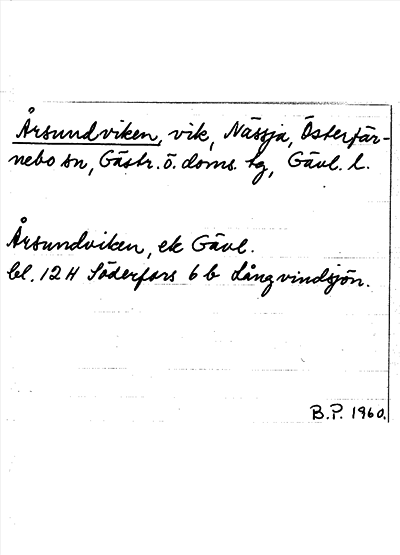 Årsundviken, vik, Nässja, Österfär-
nebo sn, Gästr. ö. doms. tg, Gävl. l.
Årsundviken, ek Gävl.
bl. 12 H Söderfors 6 b Långvindsjön.
B.P. 1960.